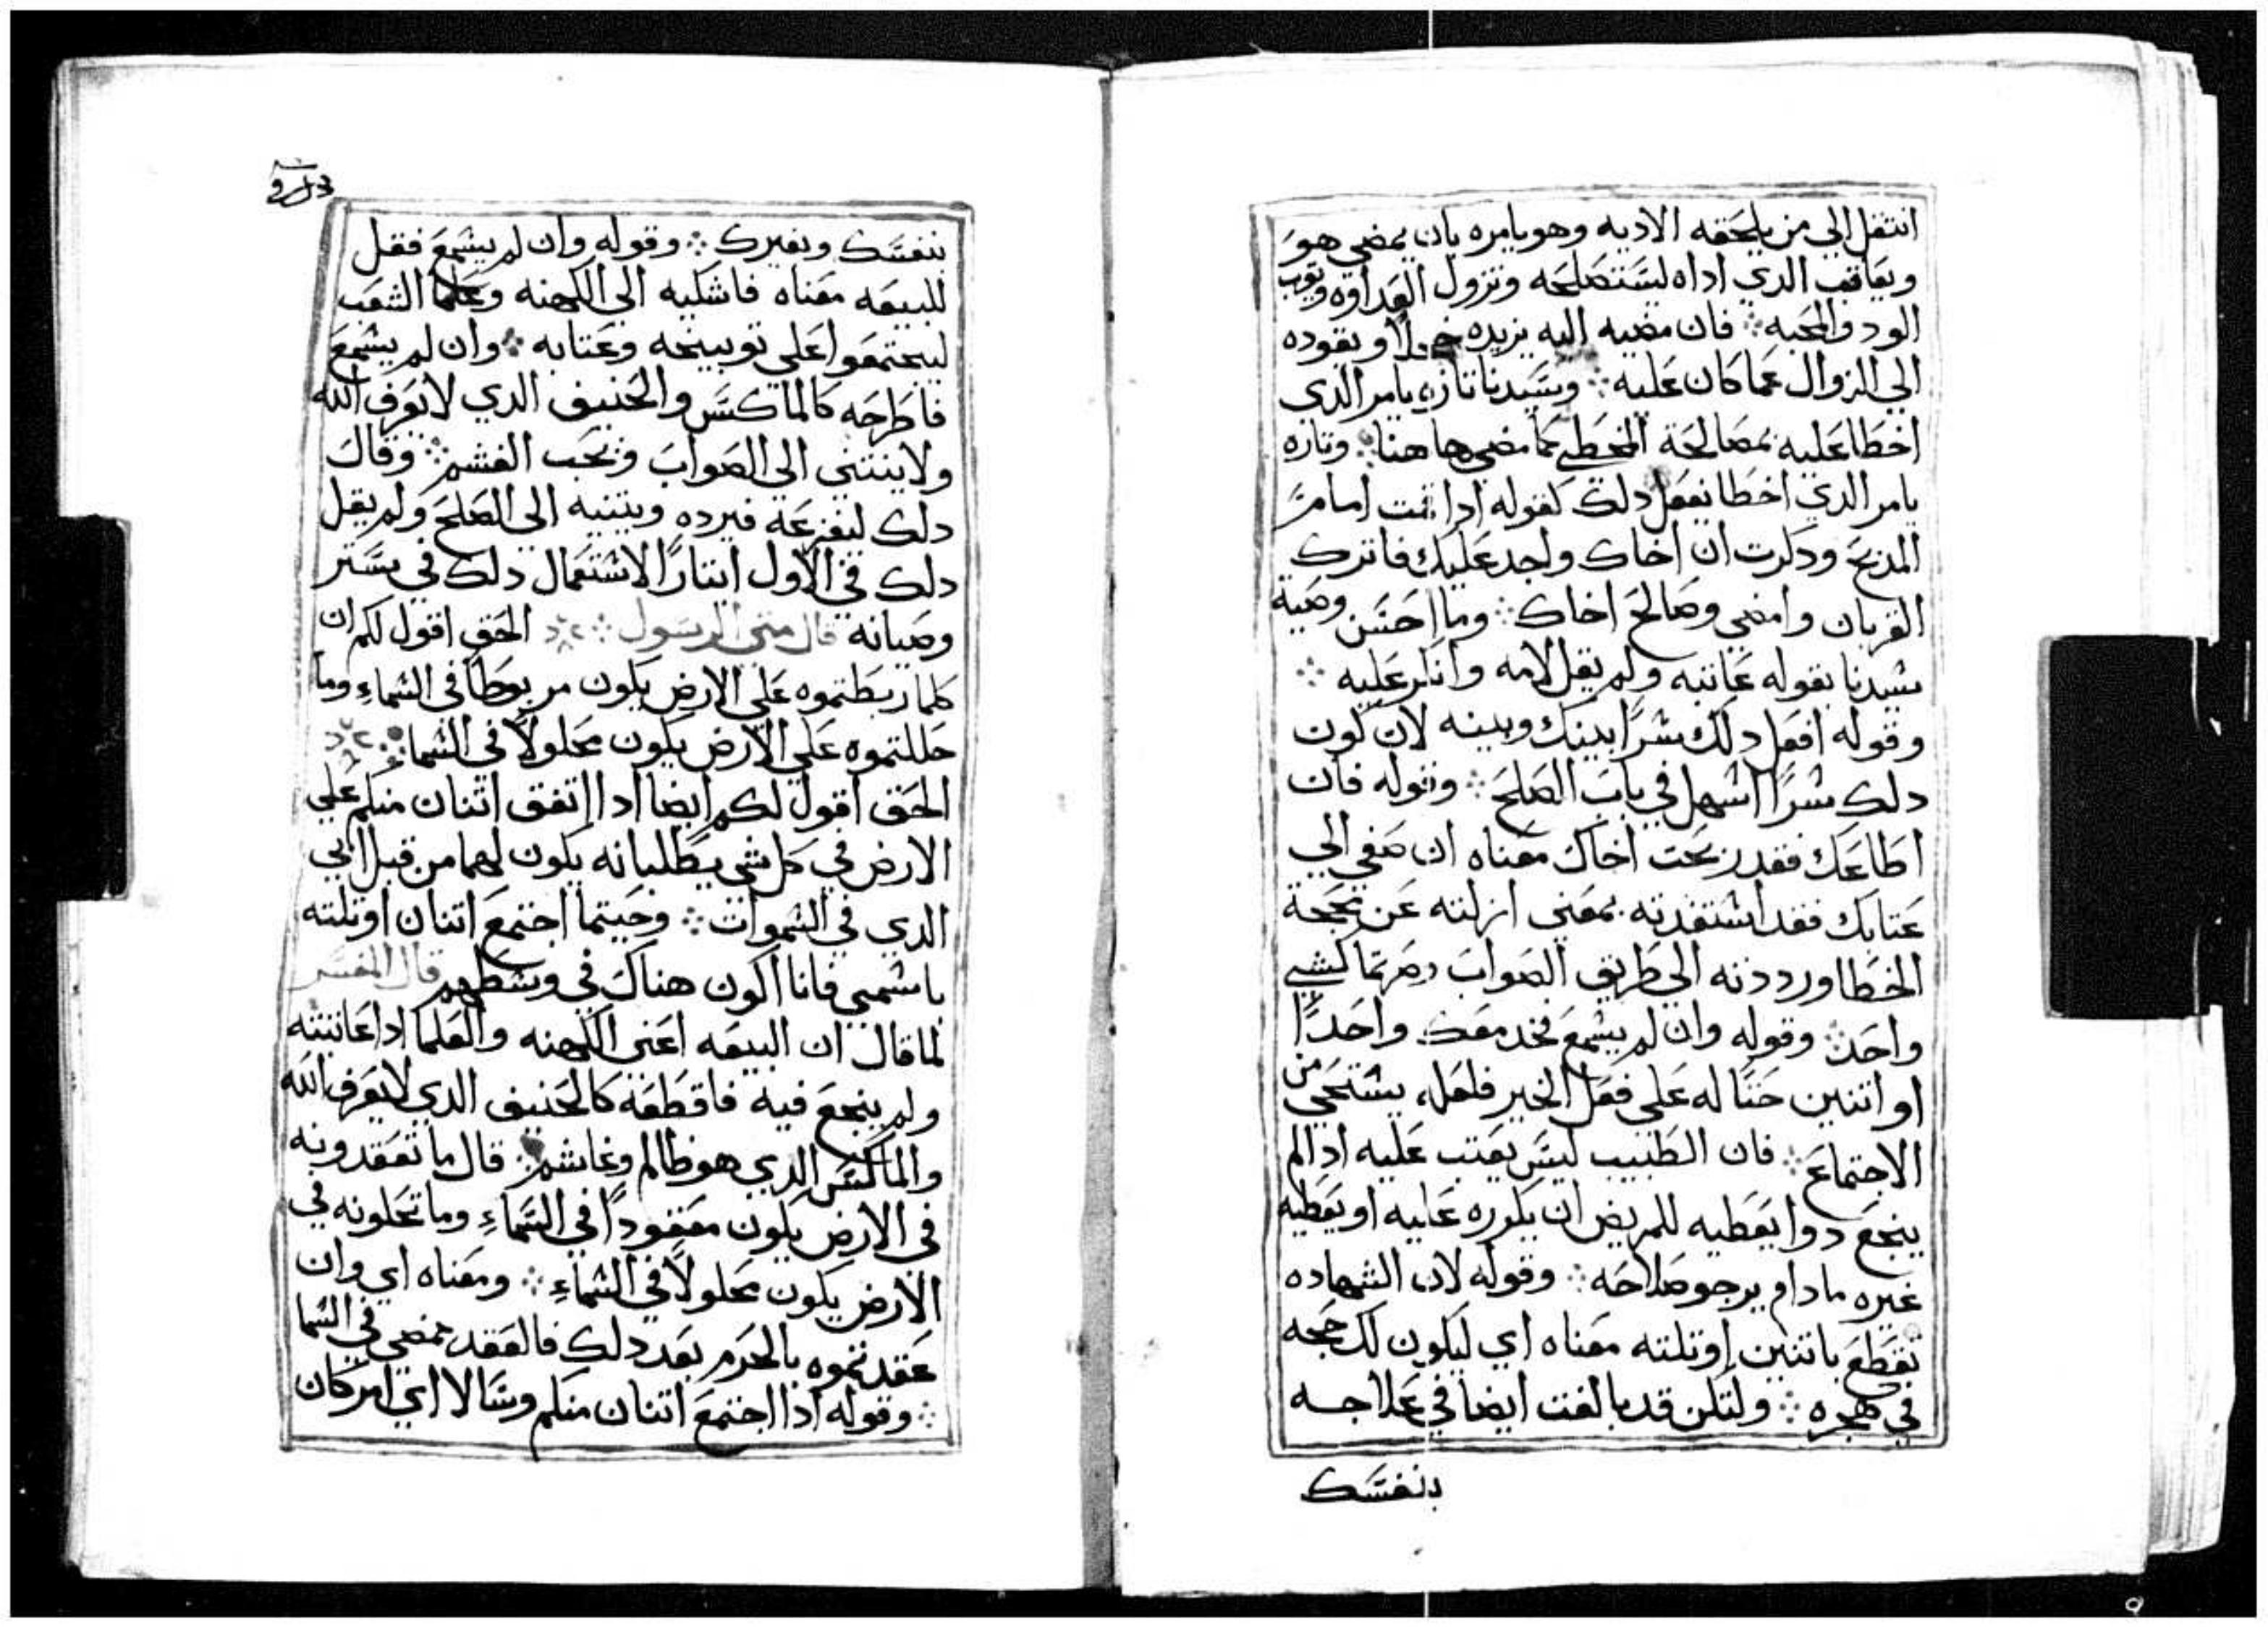 انتقل الي من يلحقه الاديه وهو يامره بان يمضي هو
ويعاقب الدي اداه ليستصلحه وتزول العداوه ويتوب
الود والمحبه ܀ فان مضيه اليه يزيده خجلا ويقوده
الي الزوال عما كان عليه ܀ وسيدنا تاره يامر الدي
اخطا عليه بمصالحة المخطي كما مضي هاهنا ܀ وتاره
يامر الدي اخطا بفعل دلك كقوله ادا انت امام
المدبح ودكرت ان اخاك واجد عليك فاترك
القربان وامضي وصالح اخاك ܀ وما احسن وصية
سيدنا بقوله عاتبه ولم يقل لامه وانكر عليه ܀
وقوله افعل دلك سرا بينك وبينه لان كون
دلك سرا اسهل في باب الصلح ܀ وقوله فان
اطاعك فقد ربحت اخاك معناه ان صغي الي
عتابك فقد استفدته بمعني ازلته عن محجة
الخطا ورددته الي طريق الصواب وصرتما كشي
واحد ܀ وقوله وان لم يسمع فخد معك واحدا
او اتنين حتا له علي فعل الخير فلعله يستحي من
الاجتماع ܀ فان الطبيب ليس يعتب عليه ادا لم
ينجع دوا يعطيه للمريض ان يكرره عليه او يعطيه
غيره مادام يرجو صلاحه ܀ وقوله لان الشهاده
تقطع باتنين او تلته معناه اي ليكون لك حجه
في هجره ܀ ولتكن قد بالغت ايضا في علاجه
بنفسك
بنفسك وبغيرك ܀ وقوله وان لم يسمع فقل
للبيعه معناه فاشكيه الي الكهنه وعلما الشعب
ليجتمعوا علي توبيخه وعتابه ܀ وان لم يسمع
فاطرحه كالماكس والحنيف الدي لا يعرف الله
ولا ينتني الي الصواب ويحب الغشم ܀ وقال
دلك ليفزعه فيرده ويتنيه الي الصلح ولم يقل
دلك في الاول ايتارا لاشتعمال دلك في ستر
وصيانه قال متي الرسول ܀ الحق اقول لكم ان
كلما ربطتموه علي الارض يكون مربوطا في السماء وما
حللتموه علي الارض يكون محلولا في السماء ܀
الحق اقول لكم ايضا ادا اتفق اتنان منكم علي
الارض في كل شي يطلبانه يكون لهما من قبل ابي
الدي في السموات ܀ وحيتما اجتمع اتنان او تلته
باسمي فانا اكون هناك في وسطهم قال المفسر
لما قال ان البيعه اعني الكهنه والعلما ادا عاتبته
ولم ينجع فيه فاقطعه كالحنيف الدي لا يعرف الله
والماكس الدي هو ظالم وغاشم ܀ قال ما تعقدونه
في الارض يكون معقودا في السماء وما تحلونه في
الارض يكون محلولا في السماء ܀ ومعناه اي وان
عقدتموه بالحرم بعد دلك فالعقد يمضي في السما
܀ وقوله ادا اجتمع اتنان منكم وسالا اي امر كان